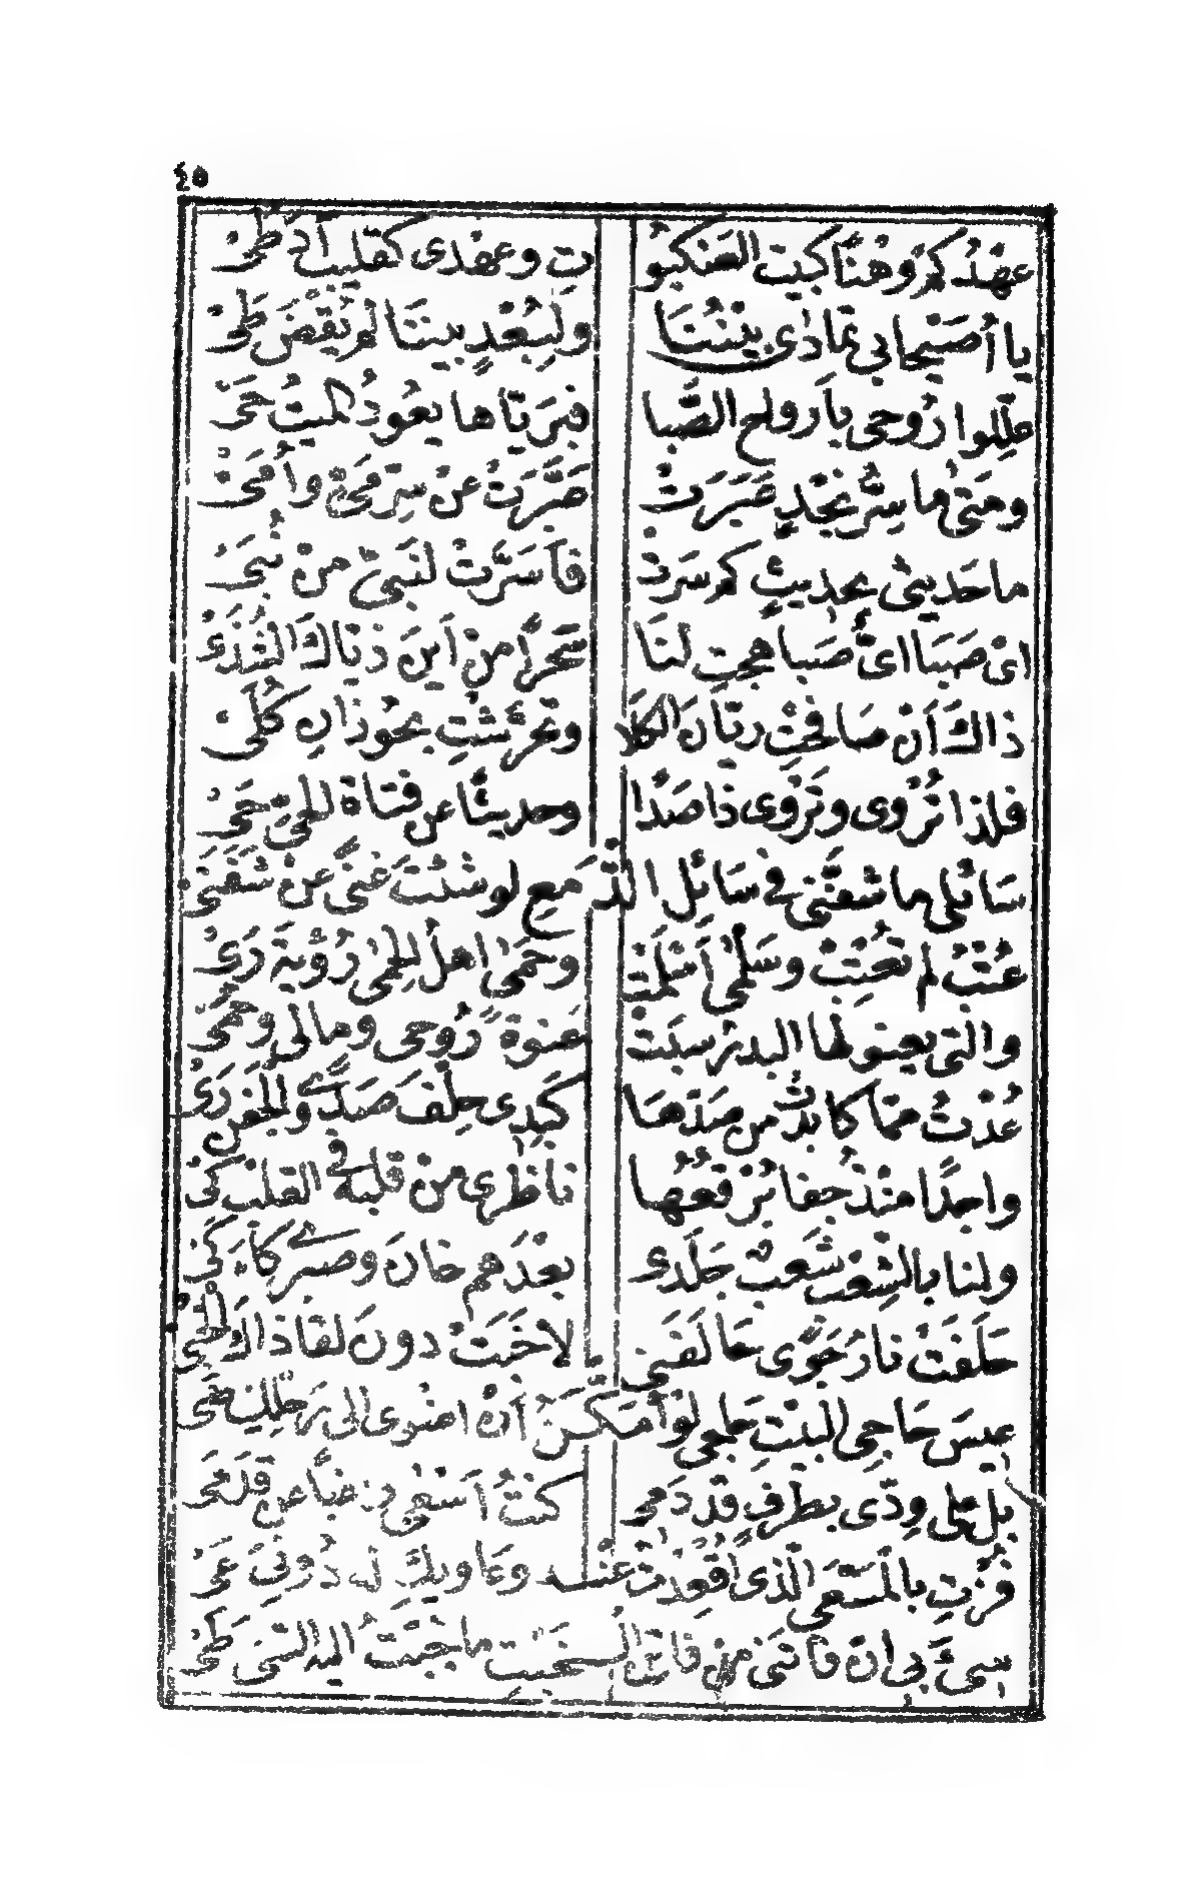 ٤٥
عهدكم وهنا كبيت العنكبو ت وعهدى كقليب آد طى
يا أصيحابى تمادى بيننا ولبعد بيننا لم يقض طى
عللوا روحى بأرواح الصبا فبرياها يعود الميت حى
ومتى ما سر نجد عبرت عبرت عن سر مى وأمى
ما حديثى بحديث كم سرت فأسرت لنبى من نبى
اى صبا اى صبا هجت لنا سحرا من اين ذياك الشذى
ذاك أن صافحت ريان الكلا وتحرشت بحوذان كلى
فلذا تروى وتروى ذا صدا وحديثا عن فتاة الحى حى
سائلى ما شفنى فى سائل الدمع لو شئت غنى عن شفتى
عتب لم تعتب وسلمى أسلمت وحمى اهل الحمى رؤية رى
والتى يعنو لها البدر سبت عنوة روحى ومالى وحمى
عدت مما كابدت من صدها كبدى حلف صدى والجفن رى
واجدا منذ جفا برقعها ناظرى من قلبه فى القلب كى
ولنا بالشعب شعب جلدى بعدهم خان وصبرى كاء كى
حلفت نار جوى حالفنى لا خبت دون لقا ذاك الخبى
عيس حاجى البيت حاجى لو أمكن أن اضوى الى رحلك ضى
بل على ودى بطرف قد دمى كنت أسعى راغبا عن قدمى
فزت بالمسعى الذى اقعدت عنه وعاويك له دونى عى
سيئ بى ان فاتنى من فاتن الخبت ما جبت اليه السى طى